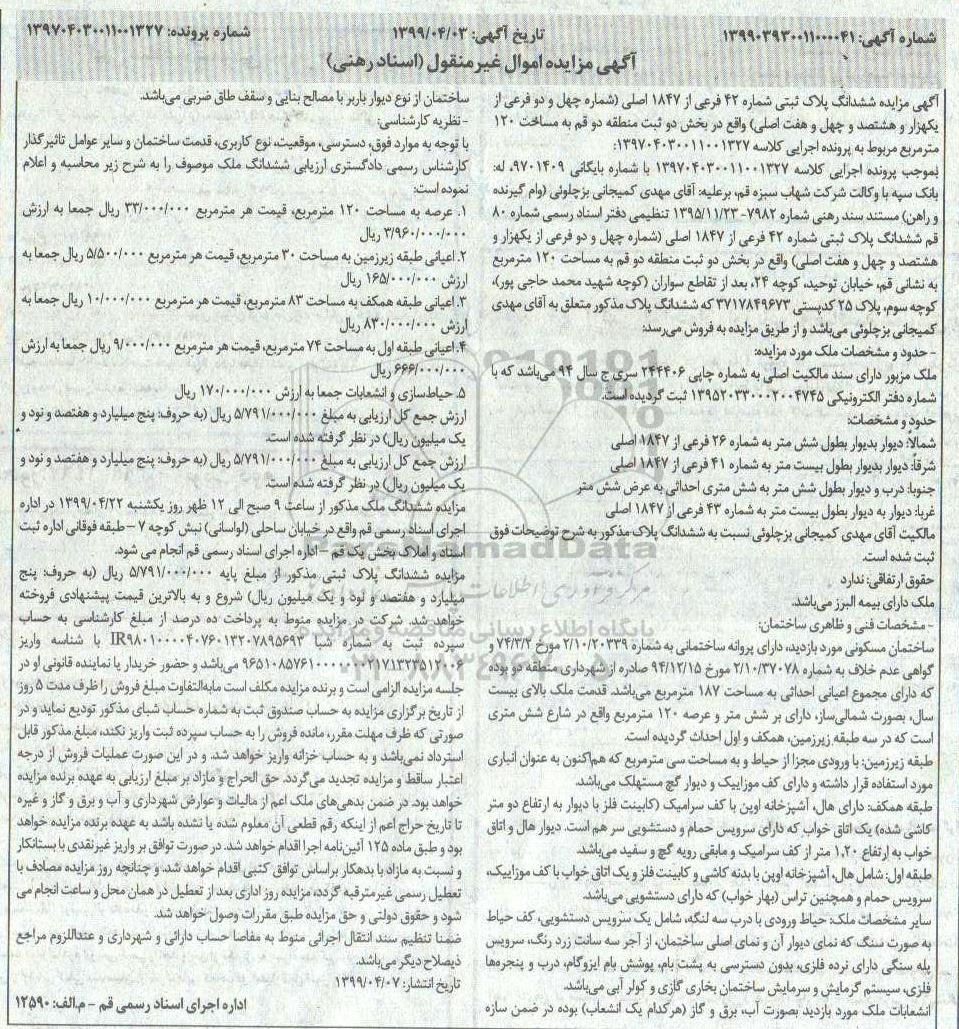 شماره آگهی: ۱۳۹۹۰۳۹۳۰۰۱۱۰۰۰۰۴۱
تاریخ آگهی: ۱۳۹۹/۰۴/۰۳
شماره پرونده: ۱۳۹۷۰۴۰۳۰۰۱۱۰۰۱۳۲۷
آگهی مزایده اموال غیرمنقول (اسناد رهنی)
آگهی مزایده ششدانگ پلاک ثبتی شماره ۴۲ فرعی از ۱۸۴۷ اصلی (شماره چهل و دو فرعی از
یکهزار و هشتصد و چهل و هفت اصلی) واقع در بخش دو ثبت منطقه دو قم به مساحت ۱۲۰
مترمربع مربوط به پرونده اجرایی کلاسه ۱۳۹۷۰۴۰۳۰۰۱۱۰۰۱۳۲۷:
بموجب پرونده اجرایی کلاسه ۱۳۹۷۰۴۰۳۰۰۱۱۰۰۱۳۲۷ با شماره بایگانی ۹۷۰۱۴۰۹، له:
بانک سپه با وکالت شرکت شهاب سبزه قم، برعلیه: آقای مهدی کمیجانی بزچلوئی (وام گیرنده
و راهن) مستند سند رهنی شماره ۷۹۸۲-۱۳۹۵/۱۱/۲۳ تنظیمی دفتر اسناد رسمی شماره ۸۰
قم ششدانگ پلاک ثبتی شماره ۴۲ فرعی از ۱۸۴۷ اصلی (شماره چهل و دو فرعی از یکهزار و
هشتصد و چهل و هفت اصلی) واقع در بخش دو ثبت منطقه دو قم به مساحت ۱۲۰ مترمربع
به نشانی قم، خیابان توحید، کوچه ۲۴، بعد از تقاطع سواران (کوچه شهید محمد حاجی پور)،
کوچه سوم، پلاک ۲۵ کدپستی ۳۷۱۷۸۴۹۶۷۳ که ششدانگ پلاک مذکور متعلق به آقای مهدی
کمیجانی بزچلوئی می‌باشد و از طریق مزایده به فروش می‌رسد:
- حدود و مشخصات ملک مورد مزایده:
ملک مزبور دارای سند مالکیت اصلی به شماره چاپی ۲۴۴۴۰۶ سری ج سال ۹۴ می‌باشد که با
شماره دفتر الکترونیکی ۱۳۹۵۲۰۳۳۰۰۰۲۰۰۴۷۴۵ ثبت گردیده است.
حدود و مشخصات:
شمالاً: دیوار بدیوار بطول شش متر به شماره ۲۶ فرعی از ۱۸۴۷ اصلی
شرقاً: دیوار بدیوار بطول بیست متر به شماره ۴۱ فرعی از ۱۸۴۷ اصلی
جنوبا: درب و دیوار بطول شش متر به شش متری احداثی به عرض شش متر
غربا: دیوار به دیوار بطول بیست متر به شماره ۴۳ فرعی از ۱۸۴۷ اصلی
مالکیت آقای مهدی کمیجانی بزچلوئی نسبت به ششدانگ پلاک مذکور به شرح توضیحات فوق
ثبت شده است.
حقوق ارتفاقی: ندارد
ملک دارای بیمه البرز می‌باشد.
- مشخصات فنی و ظاهری ساختمان:
ساختمان مسکونی مورد بازدید، دارای پروانه ساختمانی به شماره ۲/۱۰/۲۰۳۳۹ مورخ ۷۴/۳/۲ و
گواهی عدم خلاف به شماره ۲/۱۰/۳۷۰۷۸ مورخ ۹۴/۱۲/۱۵ صادره از شهرداری منطقه دو بوده
که دارای مجموع اعیانی احداثی به مساحت ۱۸۷ مترمربع می‌باشد. قدمت ملک بالای بیست
سال، بصورت شمالی‌ساز، دارای بر شش متر و عرصه ۱۲۰ مترمربع واقع در شارع شش متری
است که در سه طبقه زیرزمین، همکف و اول احداث گردیده است.
طبقه زیرزمین: با ورودی مجزا از حیاط و به مساحت سی مترمربع که هم‌اکنون به عنوان انباری
مورد استفاده قرار داشته و دارای کف موزاییک و دیوار گچ مستهلک می‌باشد.
طبقه همکف: دارای هال، آشپزخانه اوپن با کف سرامیک (کابینت فلز با دیوار به ارتفاع دو متر
کاشی شده) یک اتاق خواب که دارای سرویس حمام و دستشویی سر هم است. دیوار هال و اتاق
خواب به ارتفاع ۱،۲۰ متر از کف سرامیک و مابقی رویه گچ و سفید می‌باشد.
طبقه اول: شامل هال، آشپزخانه اوپن با بدنه کاشی و کابینت فلز و یک اتاق خواب با کف موزاییک،
سرویس حمام و همچنین تراس (بهار خواب) که دارای دستشویی می‌باشد.
سایر مشخصات ملک: حیاط ورودی با درب سه لنگه، شامل یک سرویس دستشویی، کف حیاط
به صورت سنگ که نمای دیوار آن و نمای اصلی ساختمان، از آجر سه سانت زرد رنگ، سرویس
پله سنگی دارای نرده فلزی، بدون دسترسی به پشت بام، پوشش بام ایزوگام، درب و پنجره‌ها
فلزی، سیستم گرمایش و سرمایش ساختمان بخاری گازی و کولر آبی می‌باشد.
انشعابات ملک مورد بازدید بصورت آب، برق و گاز (هرکدام یک انشعاب) بوده در ضمن سازه
ساختمان از نوع دیوار باربر با مصالح بنایی و سقف طاق ضربی می‌باشد.
- نظریه کارشناسی:
با توجه به موارد فوق، دسترسی، موقعیت، نوع کاربری، قدمت ساختمان و سایر عوامل تاثیرگذار
کارشناس رسمی دادگستری ارزیابی ششدانگ ملک موصوف را به شرح زیر محاسبه و اعلام
نموده است:
۱. عرصه به مساحت ۱۲۰ مترمربع، قیمت هر مترمربع ۳۳/۰۰۰/۰۰۰ ریال جمعا به ارزش
۳/۹۶۰/۰۰۰/۰۰۰ ریال
۲. اعیانی طبقه زیرزمین به مساحت ۳۰ مترمربع، قیمت هر مترمربع ۵/۵۰۰/۰۰۰ ریال جمعا به
ارزش ۱۶۵/۰۰۰/۰۰۰ ریال
۳. اعیانی طبقه همکف به مساحت ۸۳ مترمربع، قیمت هر مترمربع ۱۰/۰۰۰/۰۰۰ ریال جمعا به
ارزش ۸۳۰/۰۰۰/۰۰۰ ریال
۴. اعیانی طبقه اول به مساحت ۷۴ مترمربع، قیمت هر مترمربع ۹/۰۰۰/۰۰۰ ریال جمعا به ارزش
۶۶۶/۰۰۰/۰۰۰ ریال
۵. حیاط‌سازی و انشعابات جمعا به ارزش ۱۷۰/۰۰۰/۰۰۰ ریال
ارزش جمع کل ارزیابی به مبلغ ۵/۷۹۱/۰۰۰/۰۰۰ ریال (به حروف: پنج میلیارد و هفتصد و نود و
یک میلیون ریال) در نظر گرفته شده است.
ارزش جمع کل ارزیابی به مبلغ ۵/۷۹۱/۰۰۰/۰۰۰ ریال (به حروف: پنج میلیارد و هفتصد و نود و
یک میلیون ریال) در نظر گرفته شده است.
مزایده ششدانگ ملک مذکور از ساعت ۹ صبح الی ۱۲ ظهر روز یکشنبه ۱۳۹۹/۰۴/۲۲ در اداره
اجرای اسناد رسمی قم واقع در خیابان ساحلی (لواسانی) نبش کوچه ۷ – طبقه فوقانی اداره ثبت
اسناد و املاک بخش یک قم – اداره اجرای اسناد رسمی قم انجام می شود.
مزایده ششدانگ پلاک ثبتی مذکور از مبلغ پایه ۵/۷۹۱/۰۰۰/۰۰۰ ریال (به حروف: پنج
میلیارد و هفتصد و نود و یک میلیون ریال) شروع و به بالاترین قیمت پیشنهادی فروخته
خواهد شد. شرکت در مزایده منوط به پرداخت ده درصد از مبلغ کارشناسی به حساب
سپرده ثبت به شماره شبا IR۹۸۰۱۰۰۰۰۴۰۷۶۰۱۳۲۰۷۸۹۵۶۹۳ با شناسه واریز
می‌باشد و حضور خریدار یا نماینده قانونی او در
جلسه مزایده الزامی است و برنده مزایده مکلف است مابه‌التفاوت مبلغ فروش را ظرف مدت ۵ روز
از تاریخ برگزاری مزایده به حساب صندوق ثبت به شماره حساب شبای مذکور تودیع نماید و در
صورتی که ظرف مهلت مقرر، مانده فروش را به حساب سپرده ثبت واریز نکند، مبلغ مذکور قابل
استرداد نمی‌باشد و به حساب خزانه واریز خواهد شد. و در این صورت عملیات فروش از درجه
اعتبار ساقط و مزایده تجدید می‌گردد. حق الحراج و مازاد بر مبلغ ارزیابی به عهده برنده مزایده
خواهد بود. در ضمن بدهی‌های ملک اعم از مالیات و عوارض شهرداری و آب و برق و گاز و غیره
تا تاریخ حراج اعم از اینکه رقم قطعی آن معلوم شده یا نشده باشد به عهده برنده مزایده خواهد
بود و طبق ماده ۱۲۵ آئین‌نامه اجرا اقدام خواهد شد. در صورت توافق بر واریز غیرنقدی با بستانکار
و نسبت به مازاد با بدهکار براساس توافق کتبی اقدام خواهد شد. و چنانچه روز مزایده مصادف با
تعطیل رسمی غیرمترقبه گردد، مزایده روز اداری بعد از تعطیل در همان محل و ساعت انجام می
شود و حقوق دولتی و حق مزایده طبق مقررات وصول خواهد شد.
ضمنا تنظیم سند انتقال اجرائی منوط به مفاصا حساب دارائی و شهرداری و عنداللزوم مراجع
ذیصلاح دیگر می‌باشد.
تاریخ انتشار: ۱۳۹۹/۰۴/۰۷
اداره اجرای اسناد رسمی قم - م.الف: ۱۲۵۹۰